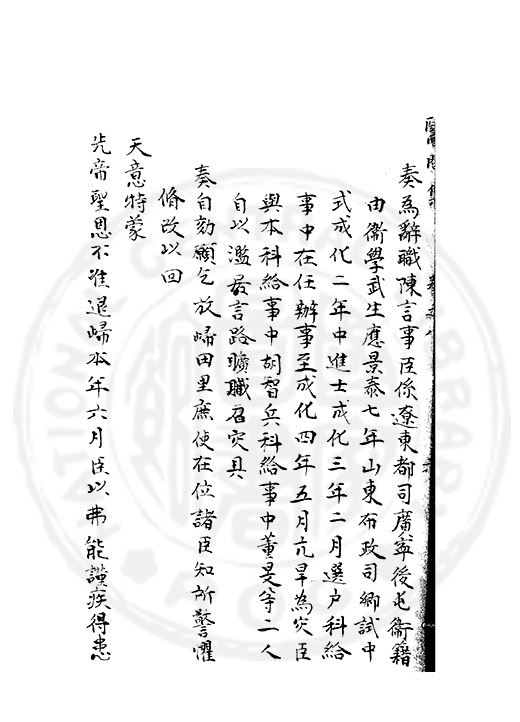 奏為辭職陳言事臣係遼東都司廣寧後屯衞籍
由衞學武生應景泰七年山東布政司鄉試中
式成化二年中進士成化三年二月選户科給
事中在任辦事至成化四年五月亢旱為灾臣
與本科給事中胡智兵科給事中董旻等二人
自以濫忝言路曠職召灾具
奏自劾願乞放歸田里庶使在位諸臣知所警懼
脩改以回
天意特蒙
先帝聖恩不准退歸本年六月臣以弗能謹疾得患